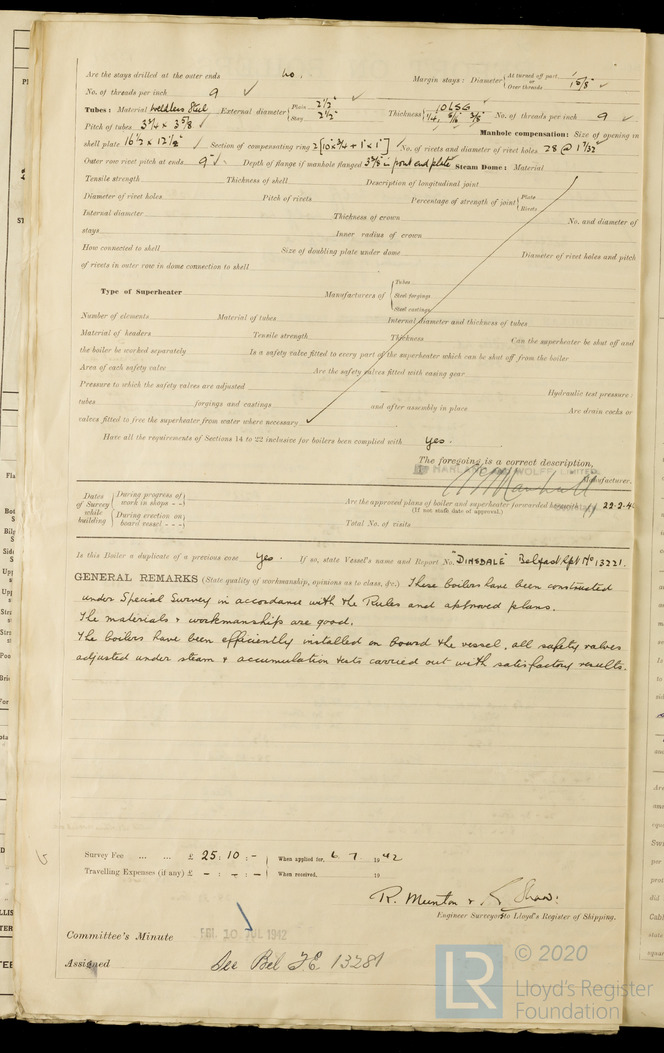 Are the stays drilled at the outer ends No. Margin stays: Diameter { At turned off part / or Over threads 1 5/8" ✓
No. of threads per inch 9 ✓
Tubes: Material Weldless Steel External diameter { Plain 2½" Stay 2½" ✓ Thickness { 10 LSG ¼" 5/16" 3/8" No. of threads per inch 9 ✓
Pitch of tubes 3¾ x 3 5/8 ✓ Manhole compensation: Size of opening in
shell plate 16½ x 12½" ✓ Section of compensating ring 2[10 x ¾ + 1" x 1"] No. of rivets and diameter of rivet holes 28 @ 1 7/32"
Outer row rivet pitch at ends 9" ✓ Depth of flange if manhole flanged 3 3/8" in front end plate Steam Dome: Material
Tensile strength Thickness of shell Description of longitudinal joint
Diameter of rivet holes Pitch of rivets Percentage of strength of joint { Plate Rivets
Internal diameter Thickness of crown No. and diameter of
stays Inner radius of crown
How connected to shell Size of doubling plate under dome Diameter of rivet holes and pitch
of rivets in outer row in dome connection to shell
Type of Superheater Manufacturers of { Tubes Steel forgings Steel castings
Number of elements Material of tubes Internal diameter and thickness of tubes
Material of headers Tensile strength Thickness Can the superheater be shut off and
the boiler be worked separately Is a safety valve fitted to every part of the superheater which can be shut off from the boiler
Area of each safety valve Are the safety valves fitted with easing gear
Pressure to which the safety valves are adjusted Hydraulic test pressure:
tubes forgings and castings and after assembly in place Are drain cocks or
valves fitted to free the superheater from water where necessary
Have all the requirements of Sections 14 to 22 inclusive for boilers been complied with yes.
The foregoing is a correct description,
HARLAND & WOLFF, LIMITED
Manufacturer.
Dates of Survey while building { During progress of work in shops - - { During erection on board vessel - - -
Are the approved plans of boiler and superheater forwarded herewith 22-2-4
(If not state date of approval.)
Total No. of visits
Is this Boiler a duplicate of a previous case yes. If so, state Vessel's name and Report No. "DINSDALE" Belfast Rpt No 13221.
GENERAL REMARKS (State quality of workmanship, opinions as to class, &c.) These boilers have been constructed
under Special Survey in accordance with the Rules and approved plans.
The materials & workmanship are good.
The boilers have been efficiently installed on board the vessel, all safety valves
adjusted under steam & accumulation tests carried out with satisfactory results.
Survey Fee ... ... £ 25 : 10 : - When applied for, 6 7 1942
Travelling Expenses (if any) £ - : - : - When received, 19
R. Munton & R. Shaw.
Engineer Surveyors to Lloyd's Register of Shipping.
Committee's Minute FRI. 10 JUL 1942
Assigned See Bel F.E. 13281
© 2020
LR Lloyd's Register
Foundation